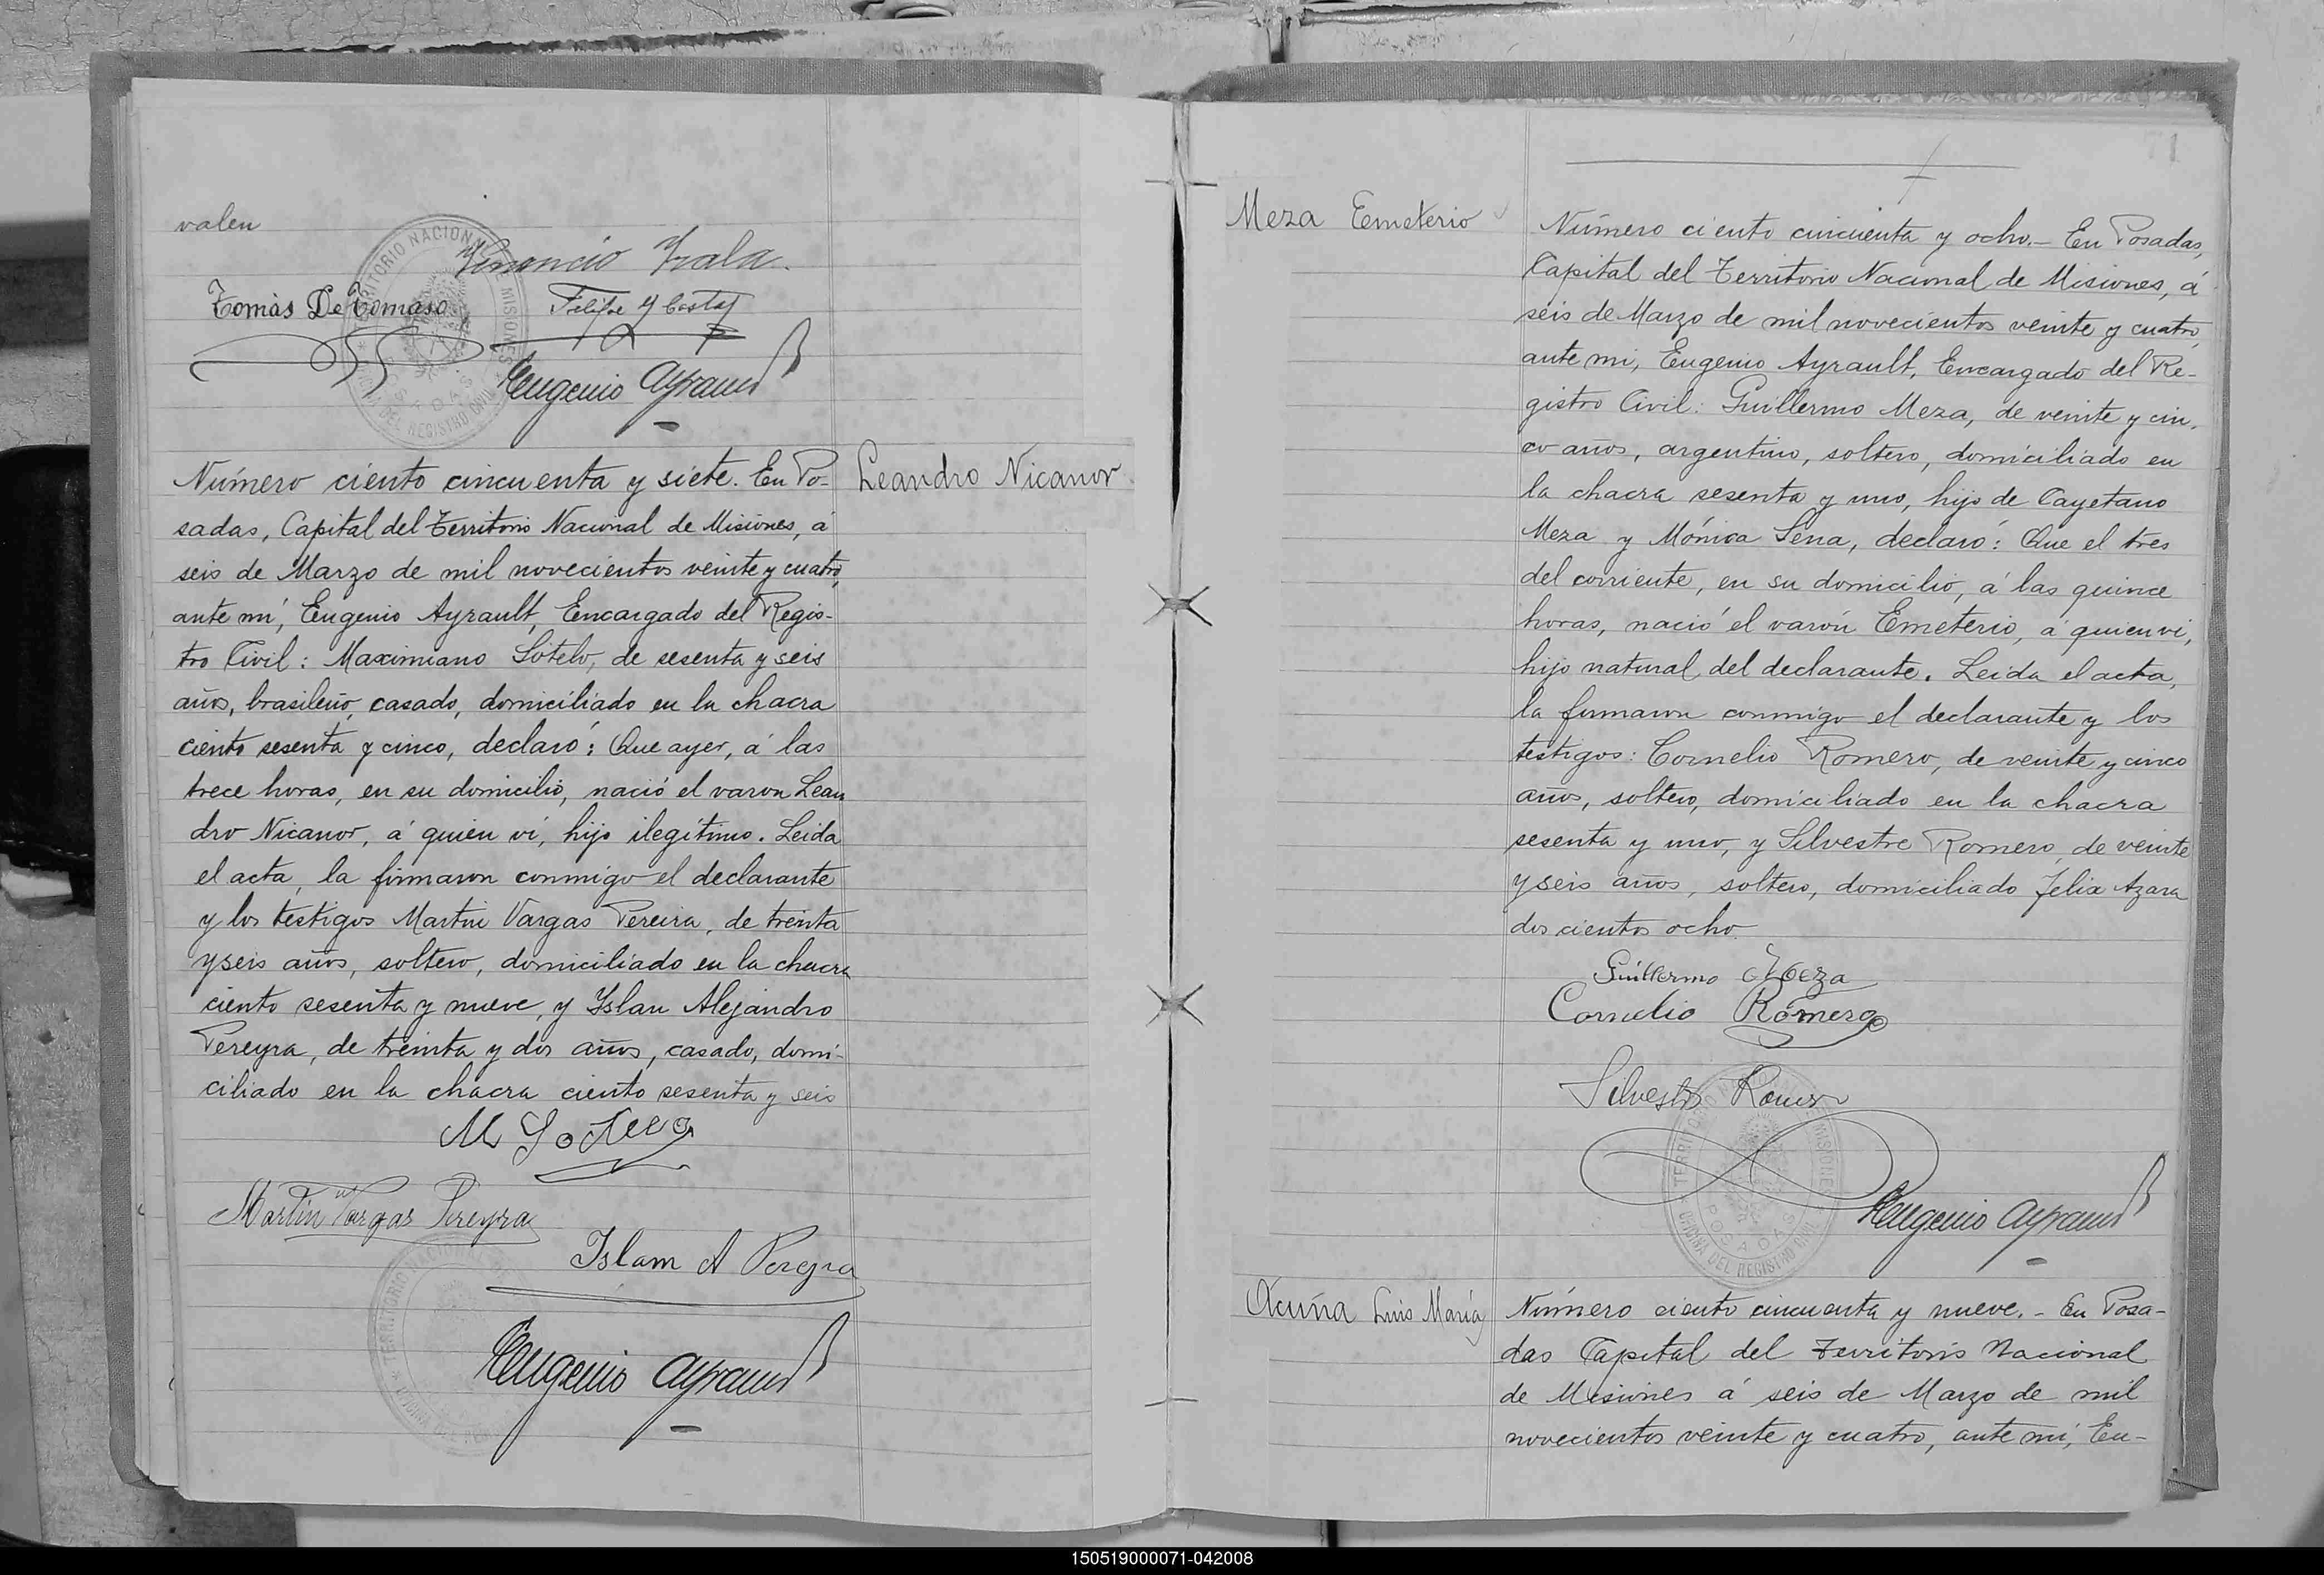 valen
Venancio Irala.
Tomás De Tomaso
Felipe
Eugenio Ayrault
TERRITORIO NACIONAL DE MISIONES
OFICINA DEL REGISTRO CIVIL
POSADAS
Leandro Nicanor
Número ciento cincuenta y siete. En Po-
sadas, Capital del Territorio Nacional de Misiones, á
seis de Marzo de mil novecientos veinte y cuatro,
ante mí, Eugenio Ayrault, Encargado del Regis-
tro Civil: Maximiano Sotelo, de sesenta y seis
años, brasileño, casado, domiciliado en la chacra
ciento sesenta y cinco, declaró: Que ayer, á las
trece horas, en su domicilio, nació el varon Lean
dro Nicanor, á quien ví, hijo ilegítimo. Leida
el acta, la firmaron conmigo el declarante
y los testigos Martin Vargas Pereira, de treinta
y seis años, soltero, domiciliado en la chacra
ciento sesenta y nueve, y Islan Alejandro
Pereyra, de treinta y dos años, casado, domi-
ciliado en la chacra ciento sesenta y seis
M Sotelo
Martin Vargas Pereyra
Islam A Pereyra
Eugenio Ayrault
71
Meza Emeterio
Número ciento cincuenta y ocho.- En Posadas,
Capital del Territorio Nacional de Misiones, á
seis de Marzo de mil novecientos veinte y cuatro,
ante mi, Eugenio Ayrault, Encargado del Re-
gistro Civil: Guillermo Meza, de veinte y cin-
co años, argentino, soltero, domiciliado en
la chacra sesenta y uno, hijo de Cayetano
Meza y Mónica Sena, declaró: Que el tres
del corriente, en su domicilio, á las quince
horas, nació el varón Emeterio, á quien vi,
hijo natural del declarante. Leida el acta,
la firmaron conmigo el declarante y los
testigos: Cornelio Romero, de veinte y cinco
años, soltero, domiciliado en la chacra
sesenta y uno, y Silvestre Romero, de veinte
y seis años, soltero, domiciliado Felix Azara
dos cientos ocho
Guillermo Meza
Cornelio Romero
Silvestre Romero
Eugenio Ayrault
Acuña Luis María
Número ciento cincuenta y nueve.- En Posa-
das Capital del Territorio Nacional
de Misiones á seis de Marzo de mil
novecientos veinte y cuatro, ante mí, Eu-
150519000071-042008